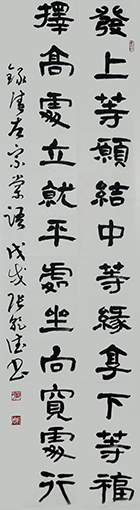 發上等願結中等緣享下等福
擇高處立就平處坐向寬處行
錄清左宗棠語戊戌張龍書